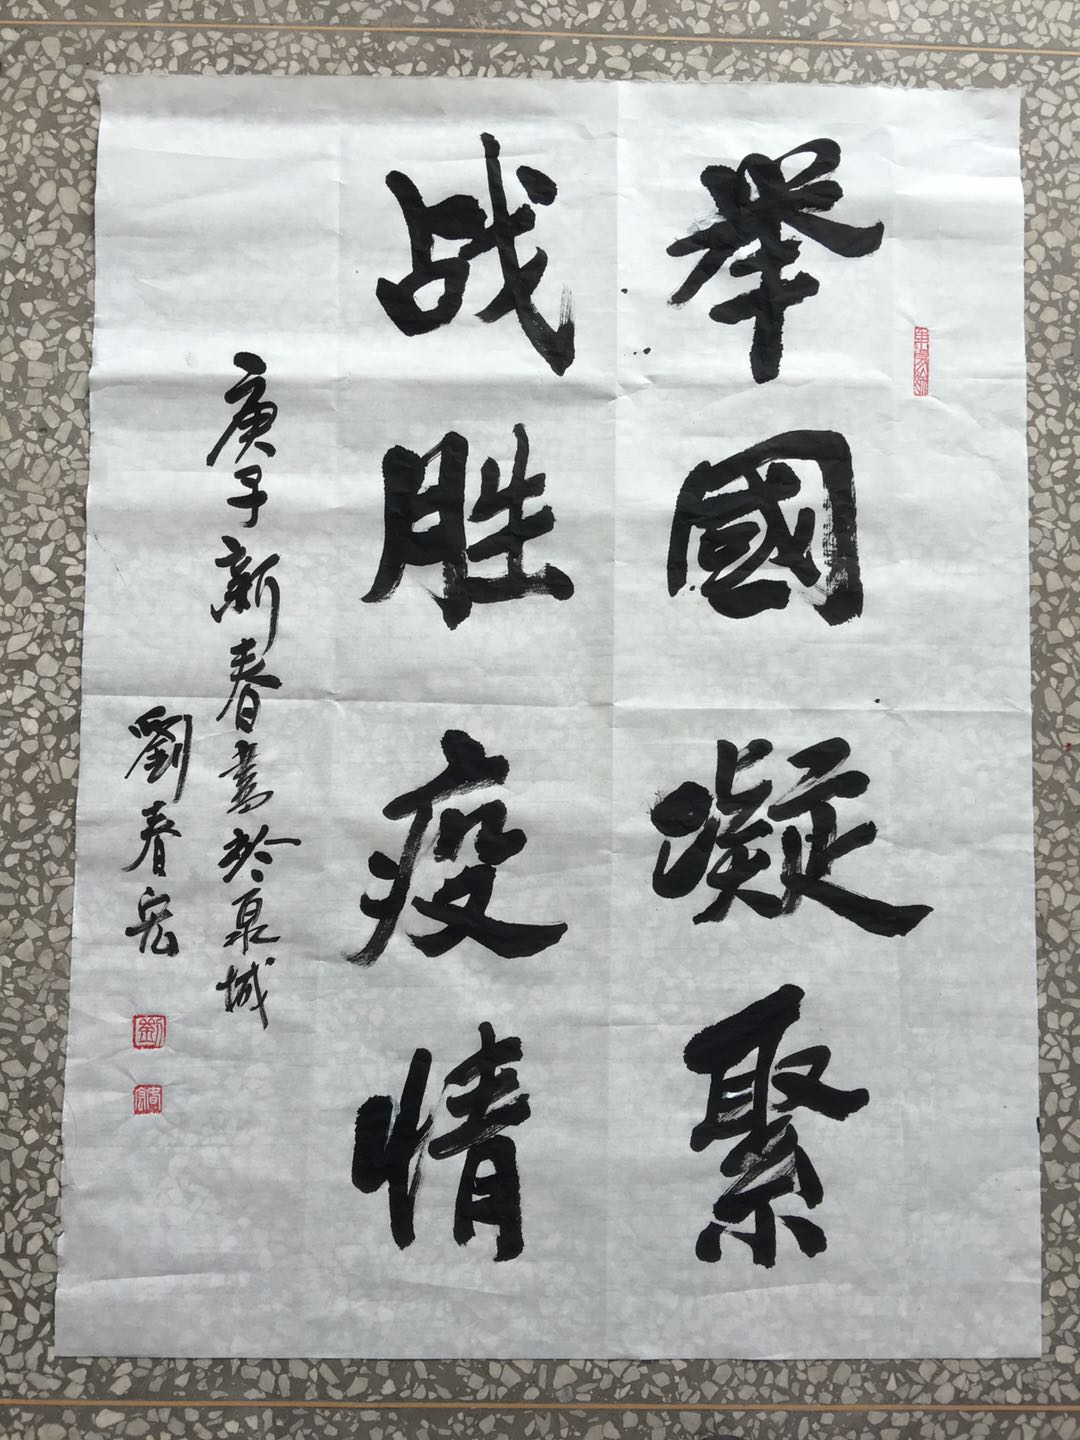 举國凝聚
战胜疫情
庚子新春書於泉城
劉春宏